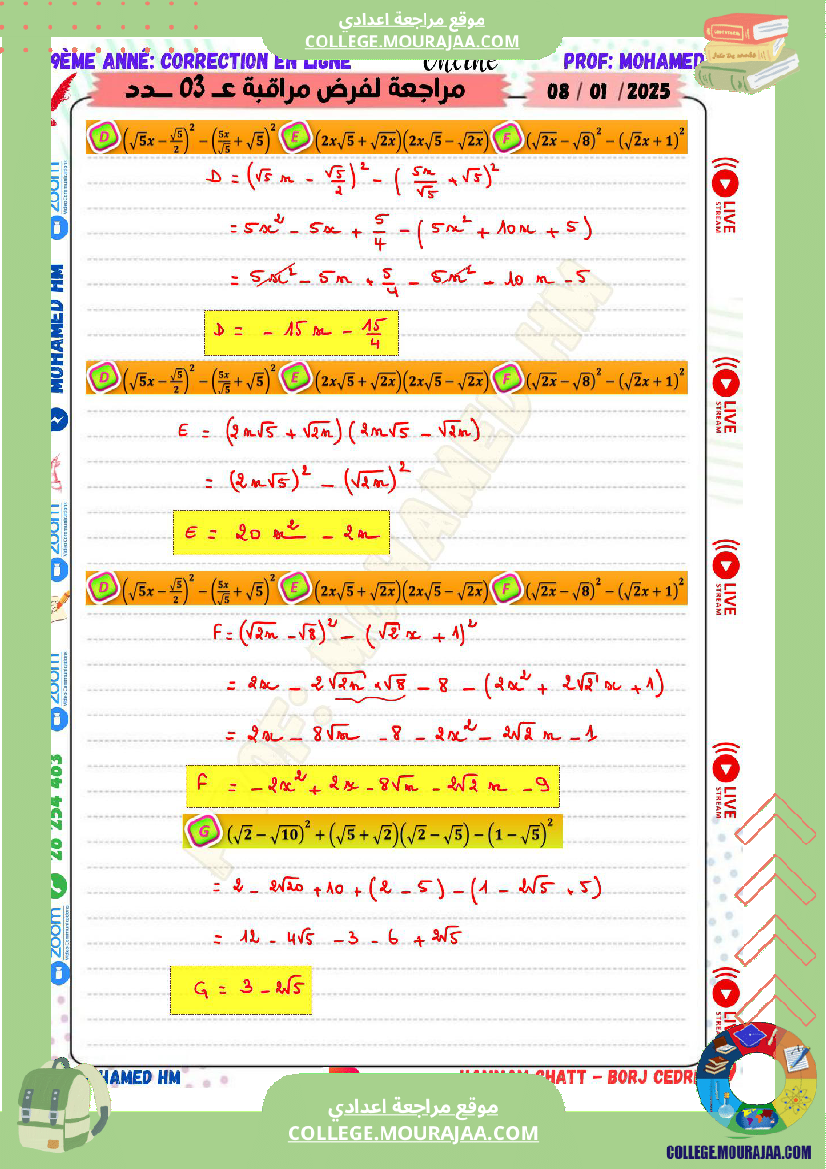 موقع مراجعة اعدادي
COLLEGE.MOURAJAA.COM
9ÈME ANNÉ: CORRECTION EN LIGNE
Online
PROF: MOHAMED
مراجعة لفرض مراقبة عـ 03 ـدد
08 / 01 /2025
D (√5x − √5/2)² − (5x/√5 + √5)² E (2x√5 + √2x)(2x√5 − √2x) F (√2x − √8)² − (√2x + 1)²
D = (√5 x − √5/2)² − (5x/√5 + √5)²
= 5x² − 5x + 5/4 − (5x² + 10x + 5)
= 5x² − 5x + 5/4 − 5x² − 10x − 5
D = − 15x − 15/4
D (√5x − √5/2)² − (5x/√5 + √5)² E (2x√5 + √2x)(2x√5 − √2x) F (√2x − √8)² − (√2x + 1)²
E = (2x√5 + √2x)(2x√5 − √2x)
= (2x√5)² − (√2x)²
E = 20x² − 2x
D (√5x − √5/2)² − (5x/√5 + √5)² E (2x√5 + √2x)(2x√5 − √2x) F (√2x − √8)² − (√2x + 1)²
F = (√2x − √8)² − (√2 x + 1)²
= 2x − 2√2x × √8 − 8 − (2x² + 2√2 x + 1)
= 2x − 8√x − 8 − 2x² − 2√2 x − 1
F = −2x² + 2x − 8√x − 2√2 x − 9
G (√2 − √10)² + (√5 + √2)(√2 − √5) − (1 − √5)²
= 2 − 2√20 + 10 + (2 − 5) − (1 − 2√5 + 5)
= 12 − 4√5 − 3 − 6 + 2√5
G = 3 − 2√5
PROF: MOHAMED HM
zoom
MOHAMED HM
zoom
zoom
28 254 403
zoom
LIVE
STREAM
LIVE
STREAM
LIVE
STREAM
LIVE
STREAM
STREAM
HAMED HM
HAMMAM CHATT - BORJ CEDRI
موقع مراجعة اعدادي
COLLEGE.MOURAJAA.COM
COLLEGE.MOURAJAA.COM